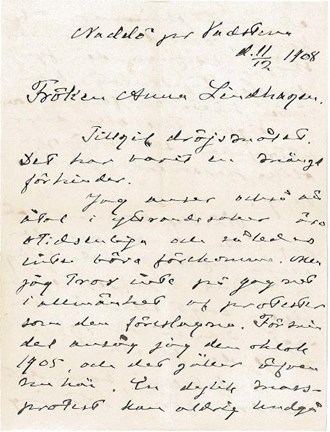 Naddö pr Vadstena
d. 11/12 1908
Fröken Anna Lindhagen.
Tillgif dröjsmålet.
Det har varit en mängd
förhinder.
Jag anser också att
åtal i yttrandesaker äro
otidsenliga och således
inte böra förekomma. Men
jag tror inte på gagnet
i allmänhet af protester
som den föreslagna. För min
del ansåg jag den oklok
1905, och det gäller äfven
nu här. En dylik mass-
protest kan aldrig undgå